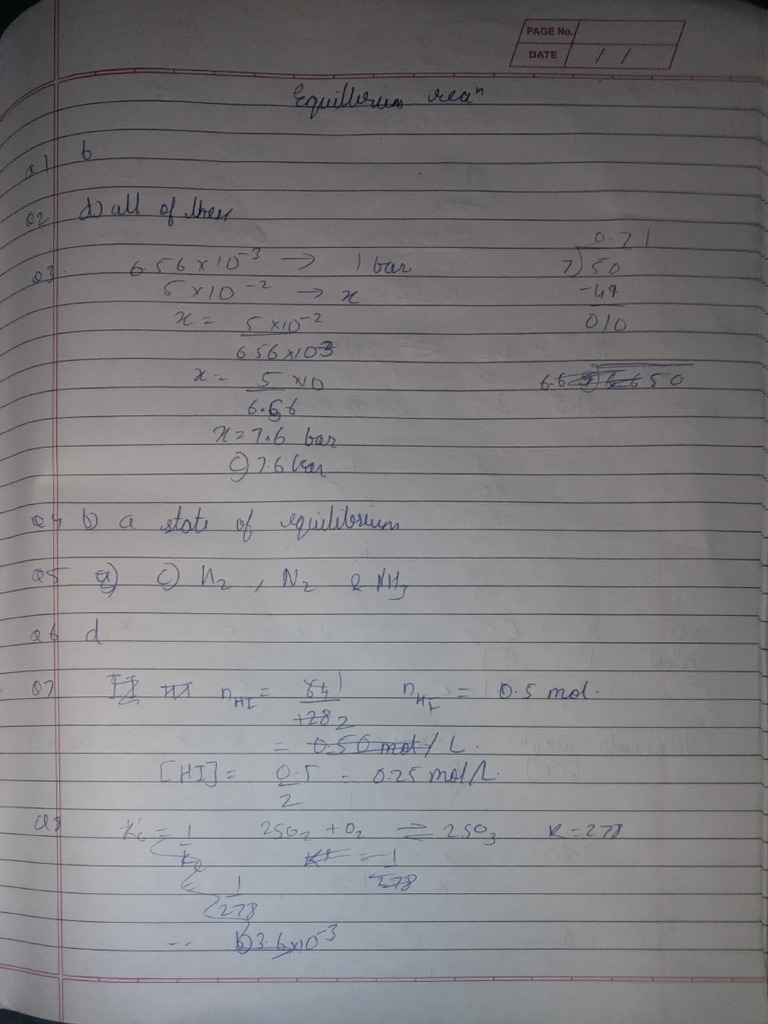 PAGE No.
DATE / /
Equillbrium reaⁿ
Q1 b
Q2 d) all of these
Q3 6.56 × 10⁻³ → 1 bar
5 × 10⁻² → x
x = 5 × 10⁻²
6.56 × 10⁻³
x = 5 × 10
6.56
x = 7.6 bar
c) 7.6 bar
0.71
7) 50
-49
010
50
Q4 b) a state of equilibrium
Q5 a) c) H₂ , N₂ & NH₃
Q6 d
Q7 nHI = 64 1 nHI = 0.5 mol.
128 2
= 0.50 mol / L.
[HI] = 0.5 = 0.25 mol/L.
2
Q8 Kc = 1 2SO₂ + O₂ ⇌ 2SO₃ K = 278
K' = 1
278
1
278
b) 3.6×10⁻³